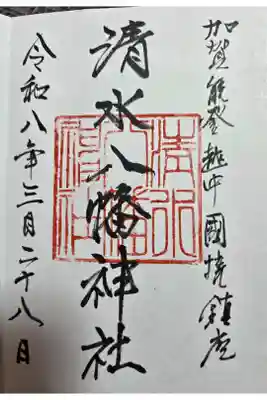 加賀能登越中國境鎮座
清水八幡神社
令和八年三月二十八日
清水八幡神社